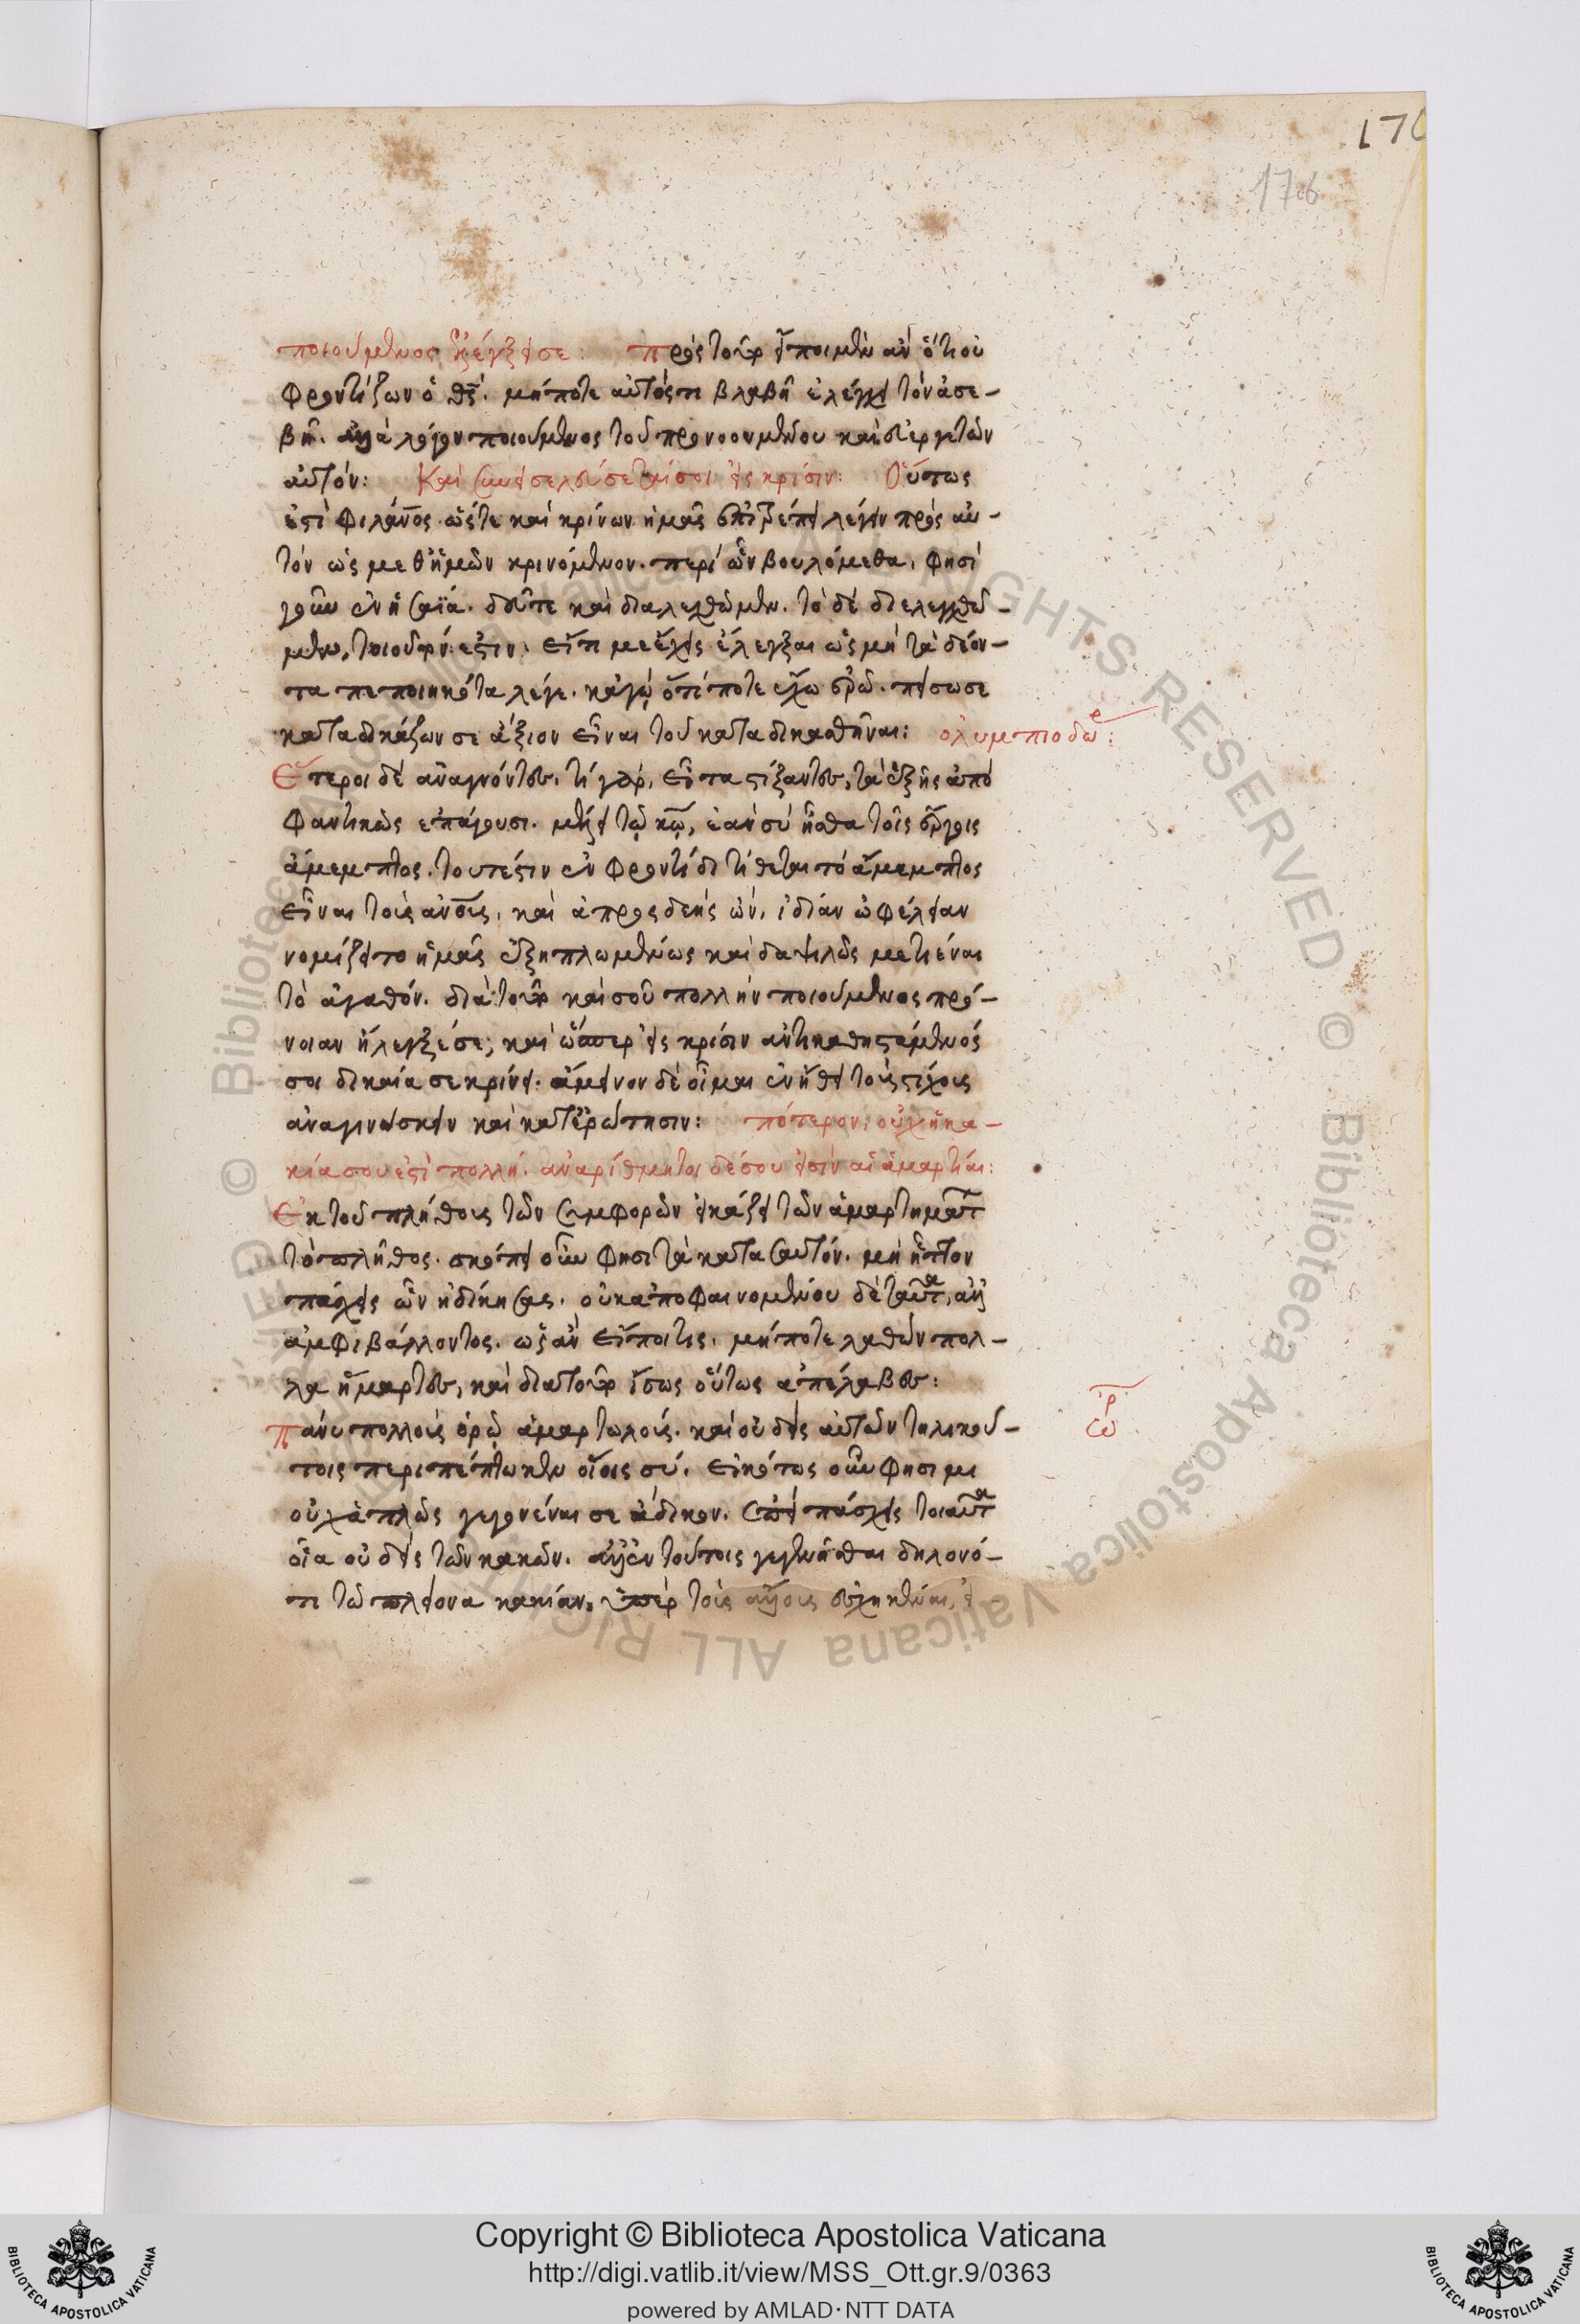 170
176
ποιούμενος ἐλέγξει σε: πρὸς τοῦτο εἴποιμεν ἂν ὅτι οὐ
φροντίζων ὁ θς̅. μήποτε αὐτόν τι βλαβῇ ἐλέγχει τὸν ἀσε-
βῆ. ἀλλὰ λόγον ποιούμενος τοῦ προνοουμένου καὶ εὐεργετῶν
αὐτόν: Καὶ συνεισελεύσεταί σοι εἰς κρίσιν: Οὕτως
ἐστὶ φιλάνος̅ ὥστε καὶ κρίνων ἡμᾶς ἐπιτρέπει λέγειν πρὸς αὐ-
τὸν ὡς μεθ' ἡμῶν κρινόμενον. περὶ ὧν βουλόμεθα. φησὶ
γοῦν ἐν ἡσαΐα. δεῦτε καὶ διαλεχθῶμεν. τὸ δὲ διελεγχθῶ-
μεν, τοιοῦτόν ἐστιν. εἴ τι με ἔχεις ἐλέγξαι ὡς μὴ τὰ δέον-
τα πεποιηκότα λέγε. κἀγὼ ὅτί ποτε ἔχω ἐρῶ. πείσω σε
καταδικάζων σε ἄξιον εἶναι τοῦ καταδικασθῆναι: ολυμπιοδώ:
Ἕτεροι δὲ ἀναγνόντες. τί γάρ. εἶτα στίξαντες, τὰ ἑξῆς ἀπο
φαντικῶς ἐπάγουσι. μέλει τῷ κω̅, ἐὰν σὺ ἦσθα τοῖς ἔργοις
ἄμεμπτος. τουτέστιν ἐν φροντίδι τίθεται τὸ ἄμεμπτος
εἶναι τοὺς ἀνους̅. καὶ ἀπροσδεὴς ὤν. ἰδίαν ὠφέλειαν
νομίζει τὸ ἡμᾶς ἐξηπλωμένως καὶ δαψιλῶς μετιέναι
τὸ ἀγαθόν. διὰ τοῦτο καὶ σοῦ πολλὴν ποιούμενος πρό-
νοιαν ἤλεγξέ σε; καὶ ὥσπερ εἰς κρίσιν ἀντικαθιστάμενός
σοι δίκαιά σε κρίνει. ἄμεινον δὲ οἶμαι ἐν ἤθει τοὺς στίχους
ἀναγινώσκειν καὶ κατ' ἐρώτησιν: πότερον, οὐχ ἡ κα-
κία σου ἐστὶ πολλή. ἀναρίθμητοι δέ σου εἰσὶν αἱ ἁμαρτίαι:
Ἐκ τοῦ πλήθους τῶν συμφορῶν εἰκάζει τῶν ἁμαρτημάτ
τὸ πλῆθος. σκόπει οὖν φησι τὰ κατὰ σαυτόν. μὴ ἧττον
πάσχεις ὧν ἠδίκησας. οὐκ ἀποφαινομένου δὲ ταῦτα, ἀλλ'
ἀμφιβάλλοντος. ὡς ἂν εἴποι τις. μήποτε λαθὼν πολ-
λὰ ἥμαρτες, καὶ διὰ τοῦτο ἴσως οὕτως ἀπέλαβες:
Πάνυ πολλοὺς ὁρῶ ἁμαρτωλούς. καὶ οὐδεὶς αὐτῶν τηλικού-
τοις περιπέπτωκεν οἵοις σύ. εἰκότως οὖν φησι μοι
οὐχ ἁπλῶς γεγονέναι σε ἄδικον. ἐπεὶ πάσχεις τοιαῦτα
οἷα οὐδεὶς τῶν κακῶν. ἀλλ' ἐν τούτοις γεγενῆσθαι δηλονό-
τι τῶ πλείονα κακίαν, ὑπὲρ τοὺς ἄλλους ἐσχηκέναι,
ὠρ
Copyright © Biblioteca Apostolica Vaticana
http://digi.vatlib.it/view/MSS_Ott.gr.9/0363
powered by AMLAD·NTT DATA
BIBLIOTECA APOSTOLICA VATICANA
BIBLIOTECA APOSTOLICA VATICANA
© Biblioteca Apostolica Vaticana ALL RIGHTS RESERVED © Biblioteca Apostolica Vaticana ALL RIGHTS RESERVED